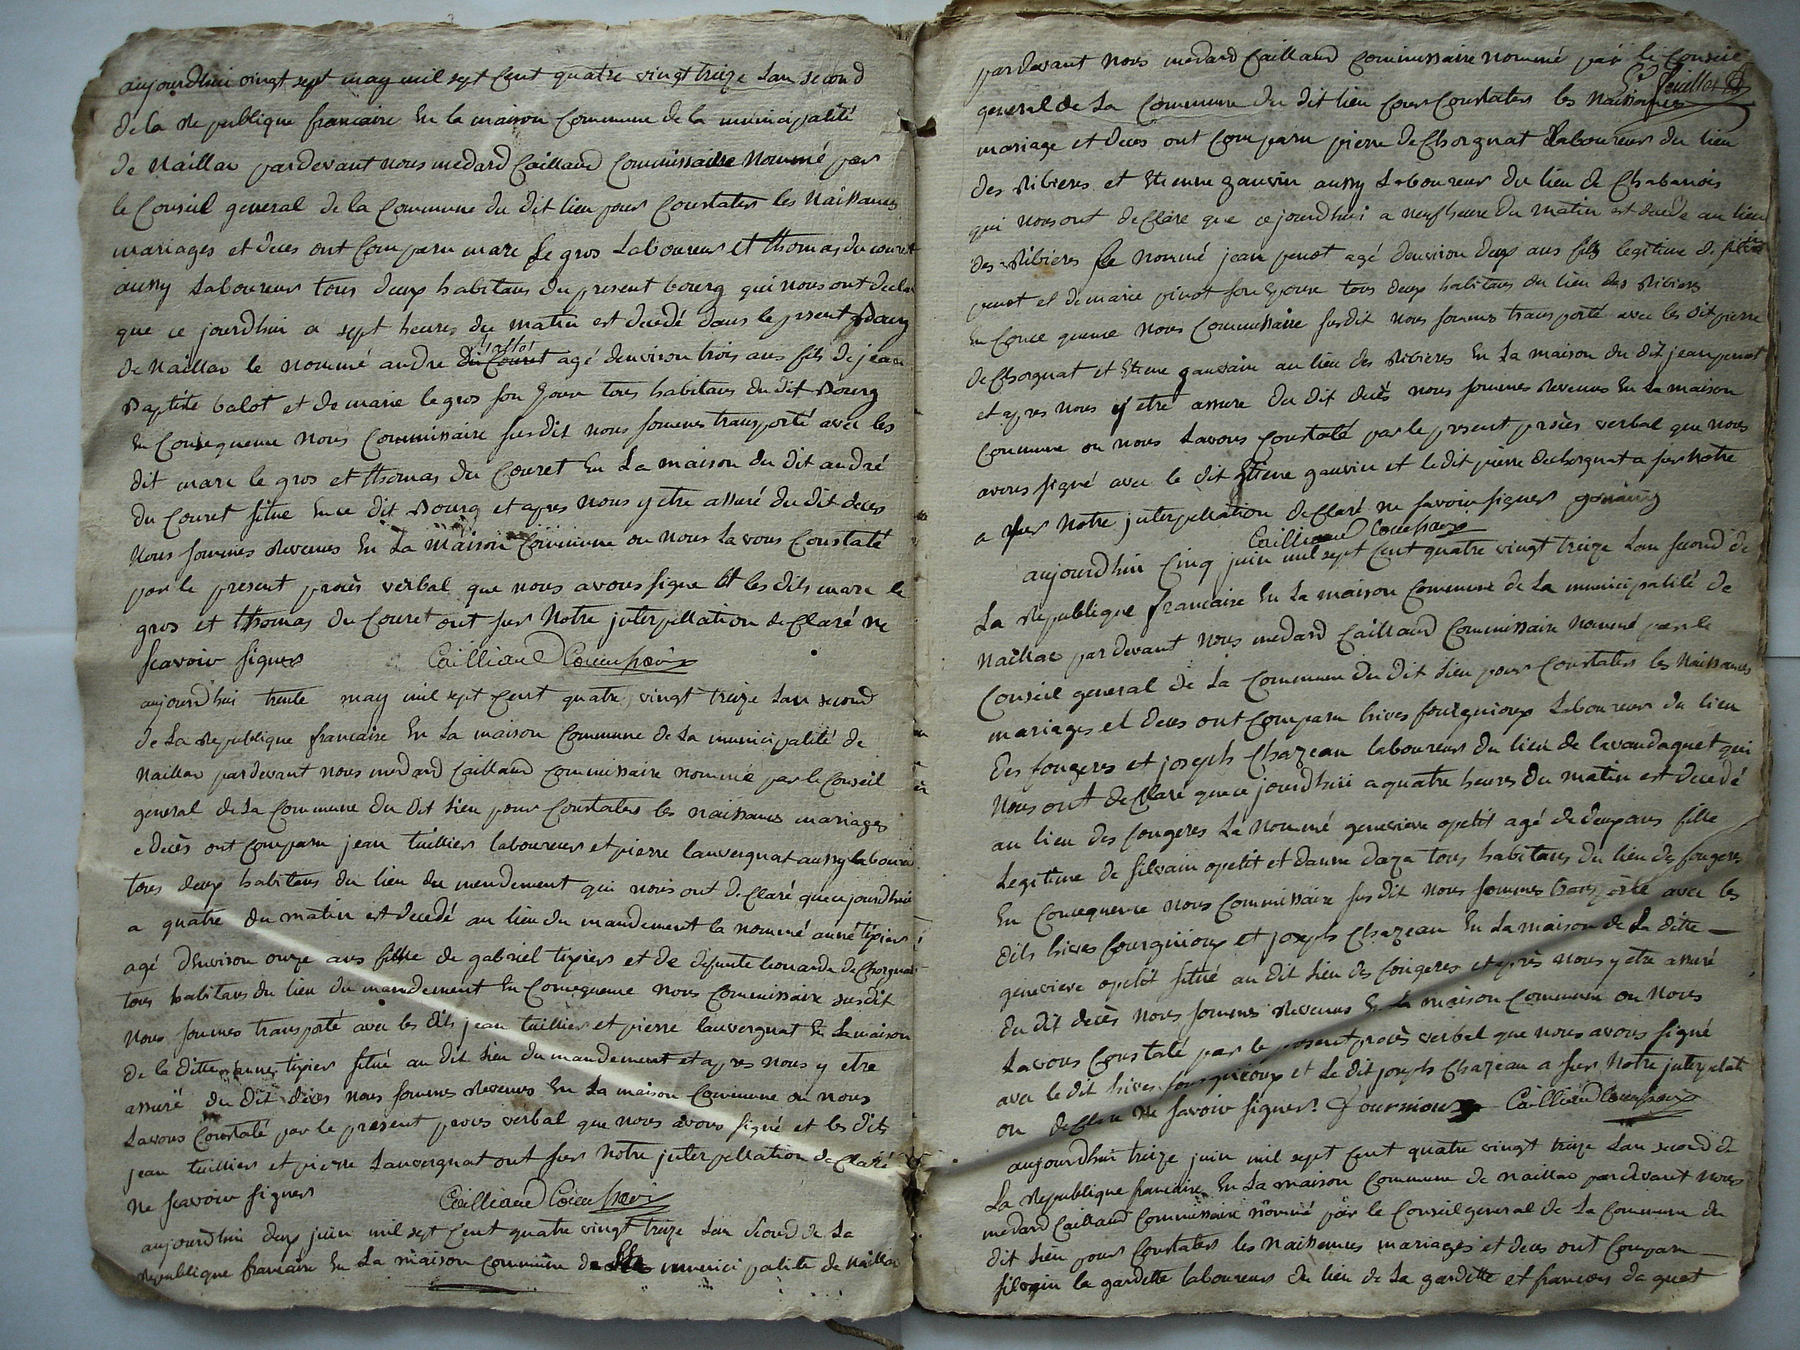 aujourdhui vingt sept may mil sept cent quatre vingt treize Lan second
de la Republique francaise En la maison Commune de la municipalité
de Naillac pardevant nous medard Cailland Commissaire Nommé par
le Conseil general de la Commune du dit lieu pour Constater les Naissances
mariages et deces ont Comparu marc le gros Laboureur et thomas du couret
aussy Laboureur tous deux habitans du present bourg qui nous ont declaré
que ce jourdhui a sept heures du matin est decedé dans le present Bourg
de Naillac le nommé andre ballot agé denviron trois ans fils de jean
Baptiste balot et de marie le gros son Epouse tous habitans du dit Bourg
En Consequence Nous Commissaire susdit nous sommes transporté avec les
dit marc le gros et thomas du Couret En La maison du dit andré
du Couret situé En ce dit Bourg et apres nous y etre assuré du dit deces
Nous sommes Revenus En La maison Commune ou nous La vons Constaté
par le present procès verbal que nous avons signe et les dits marc le
gros et thomas du Couret ont sur Notre interpellation de Claré ne
scavoir signer Cailland
aujourdhui trente may mil sept Cent quatre vingt treize Lan second
de La Republique francaise En La maison Commune de La municipalité de
Naillac pardevant nous medard Cailland Commissaire nommé par le Conseil
general de La Commune du dit Lieu pour Constater les naissances mariages
e decès ont Comparu jean tuillier laboureur et pierre Lauvergnat aussy laboureur
tous deux habitans du lieu du mendement qui nous ont de Claré que ce jourdhui
a quatre du matin est decedé au lieu du mandement la nommé anne tixier
agé dEnviron onze ans fille de gabriel tixier et de defunte Leonarde deChorgnat
tous habitans du lieu du mandement En Consequence nous Commissaire susdit
Nous sommes transporté avec les dits jean tuillier et pierre Lauvergnat En La maison
de la ditte anne tixier situé au dit Lieu du mandement et apres nous y etre
assuré du dit decès nous sommes Revenus En La maison Commune ou nous
Lavons Constaté par le present proces verbal que nous avons signé et les dits
jean tuillier et pierre Lauvergnat ont sur Notre interpellation de Claré
ne scavoir signer Cailland
aujourdhui deux juin mil sept Cent quatre vingt treize Lan second de La
Republique francaise En La maison Commune de municipalité de Naillac
pardevant nous medard Cailland Commissaire nommé par le Conseil
general de La Commune du dit lieu pour Constater les Naissances
mariage et deces ont Comparu pierre deChorgnat Laboureur du lieu
des Ribieres et Etienne gauvin aussy Laboureur du lieu de Chabanois
qui nous ont deClaré que cejourdhui a neuf heure du matin est decedé au lieu
des Ribieres le nommé jean penot agé denviron deux ans fils legitime de
penot et de marie pinot son Epouse tous deux habitans du lieu des Ribieres
En Conce quence nous Commissaire susdit nous sommes transporté avec les dit pierre
deChorgnat et Etiene gauvain au lieu des Ribieres En La maison du dit jean penot
et apres nous y etre assure du dit decès nous sommes Revenus En La maison
Commune ou nous Lavons Constaté par le present procès verbal que nous
avons signé avec le dit Etiene gauvin et le dit pierre dechorgnat a sur Notre
a sur Notre interpellation de Claré ne savoir signer
Cailland
aujourdhui Cinq juin mil sept Cent quatre vingt treize Lan second de
La Republique francaise En La maison Commune de La municipalité de
Naillac pardevant Nous medard Cailland Commissaire Nommé par le
Conseil general de La Commune du dit Lieu pour Constater les Naissances
mariages et deces ont Comparu hives fourgnioux Laboureur du lieu
des fougeres et joseph Chazeau laboureur du lieu de lavaudaguet qui
Nous ont deClaré quece jourdhui a quatre heures du matin est decedé
au lieu des fougeres La Nommé genevieve opetit agé de deux ans fille
Legitime de silvain opetit et danne daza tous habitans du lieu des fougeres
En Concequence nous Commissaire susdit Nous sommes transporté avec les
dits hives fourgnioux et joseph Chazeau En La maison de La ditte
genevieve opetit situé au dit Lieu des fougeres et après nous y etre assuré
du dit decès nous sommes Revenus En La maison Commune ou Nous
Lavons Constaté par le present procès verbal que nous avons signé
avec le dit hives fourgnioux et Le dit joseph Chazeau a sur Notre interpelati
on deClare Ne savoir signer. fournioux Cailland
aujourdhui treize juin mil sept Cent quatre vingt treize Lan second de
La Republique francaise En La maison Commune de Naillac pardevant Nous
medard Cailland Commissaire nommé par le Conseil general de La Commune du
dit Lieu pour Constater les Naissances mariages et deces ont Comparu
silvain la gardette laboureur du lieu de La gardette et francois daguet